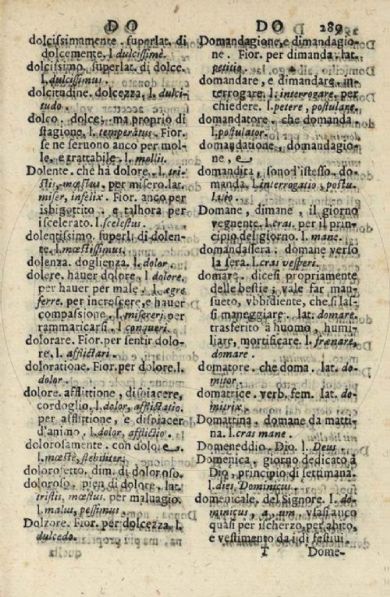 DO
dolcissimamente. superlat. di
dolcemente. l. dulcissimè.
dolcissimo. superlat. di dolce.
l. dulcissimus.
dolcitudine. dolcezza. l. dulci-
tudo.
dolco. dolce. ma proprio di
stagione. l. temperatus. Fior.
se ne seruono anco per mol-
le, e trattabile. l. mollis.
Dolente. che hà dolore. l. tri-
stis, mœstus. per misero. lat.
miser, infelix. Fior. anco per
isbigottito. e talhora per
iscelerato. l. scelestus.
dolentissimo. superl. di dolen-
te. l. mœstissimus.
dolenza. doglienza. l. dolor.
dolere. hauer dolore. l. dolore.
per hauer per male. l. ægrè
ferre. per increscere, e hauer
compassione. l. misereri. per
rammaricarsi. l. conqueri.
dolorare. Fior. per sentir dolo-
re. l. afflictari.
doloratione. Fior. per dolore. l.
dolor.
dolore. afflittione, dispiacere,
cordoglio. l. dolor, afflictatio.
per afflittione, e dispiacer
d'animo. l. dolor, afflictio.
dolorosamente. con dolore.
l. mœstè, flebiliter.
dolorosetto. dim. di doloroso.
doloroso. pien di dolore. lat.
tristis, mœstus. per maluagio.
l. malus, pessimus.
Dolzore. Fior. per dolcezza. l.
dulcedo.
DO 289
Domandagione, e dimandagio-
ne. Fior. per dimanda. lat.
petitio.
domandare, e dimandare. in-
terrogare. l. interrogare. per
chiedere. l. petere, postulare.
domandatore. che domanda.
l. postulator.
domandatione, domandagio-
ne, e
domandita, sono l'istesso. do-
manda. l. interrogatio, postu-
latio.
Domane, dimane, il giorno
vegnente. l. cras. per il prin-
cipio del giorno. l. mane.
domandassera. domane verso
la sera. l. cras vesperi.
domare. dicesi propriamente
delle bestie; vale far man-
sueto, vbbidiente, che si las-
si maneggiare. lat. domare.
trasferito à huomo, humi-
liare, mortificare. l. frenare,
domare.
domatore. che doma. lat. do-
mitor.
domatrice. verb. fem. lat. do-
mitrix.
Domattina. domane da matti-
na. l. cras mane.
Domeneddio. Dio. l. Deus.
Domenica. giorno dedicato à
Dio, principio di settimana.
l. dies Dominicus.
domenicale. del Signore. l. do-
minicus, a, um. vsasi anco
quasi per ischerzo, per habito,
e vestimento da i dì festiui.
T Dome-